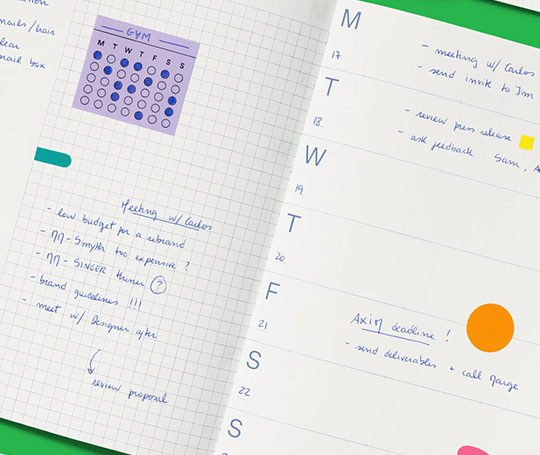 mails/
clear
mail box
GYM
M T W T F S S
Meeting w/ Carlos
- low budget for a rebrand
- Smyth too expensive?
- SINGER thinner ?
- brand guidelines !!!
- meet w/ Designer after
review proposal
M
17
- meeting w/ Carlos
- send invite to Jim
T
18
- review press release
- ask feedback Sam, A
W
19
T
20
F
21
deadline !
- send deliverables + call Marge
S
22
S